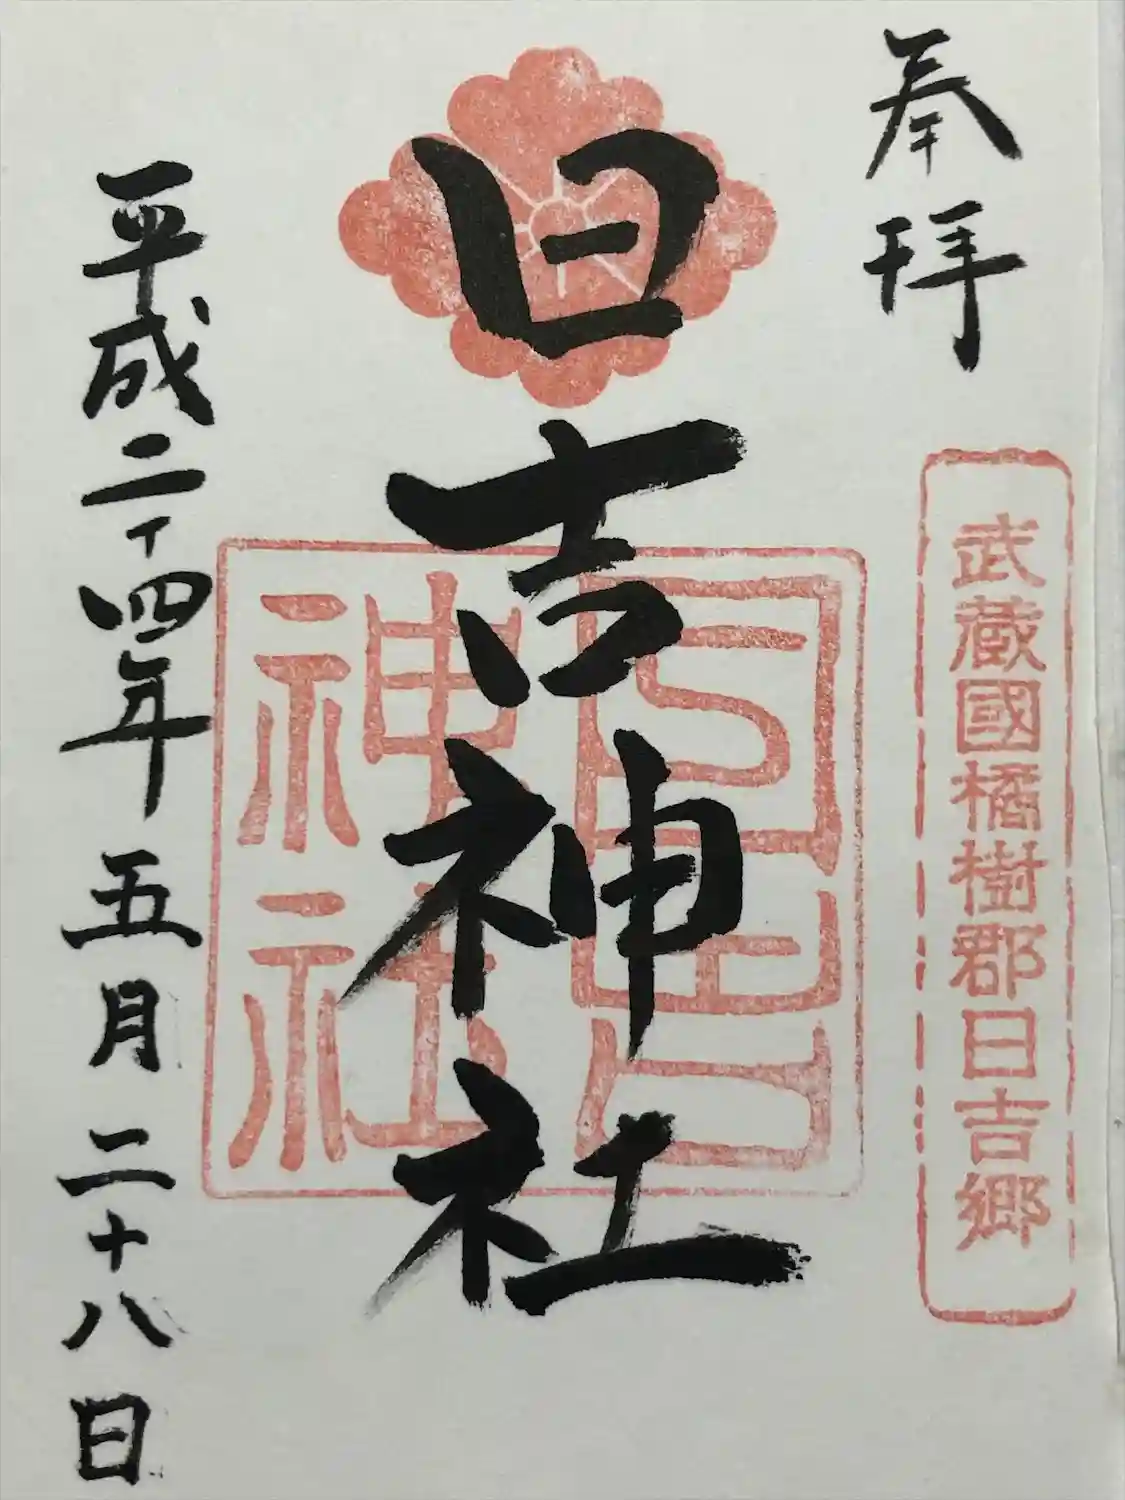 奉拝
武蔵國橘樹郡日吉郷
日吉神社
日吉神社
平成二十四年五月二十八日